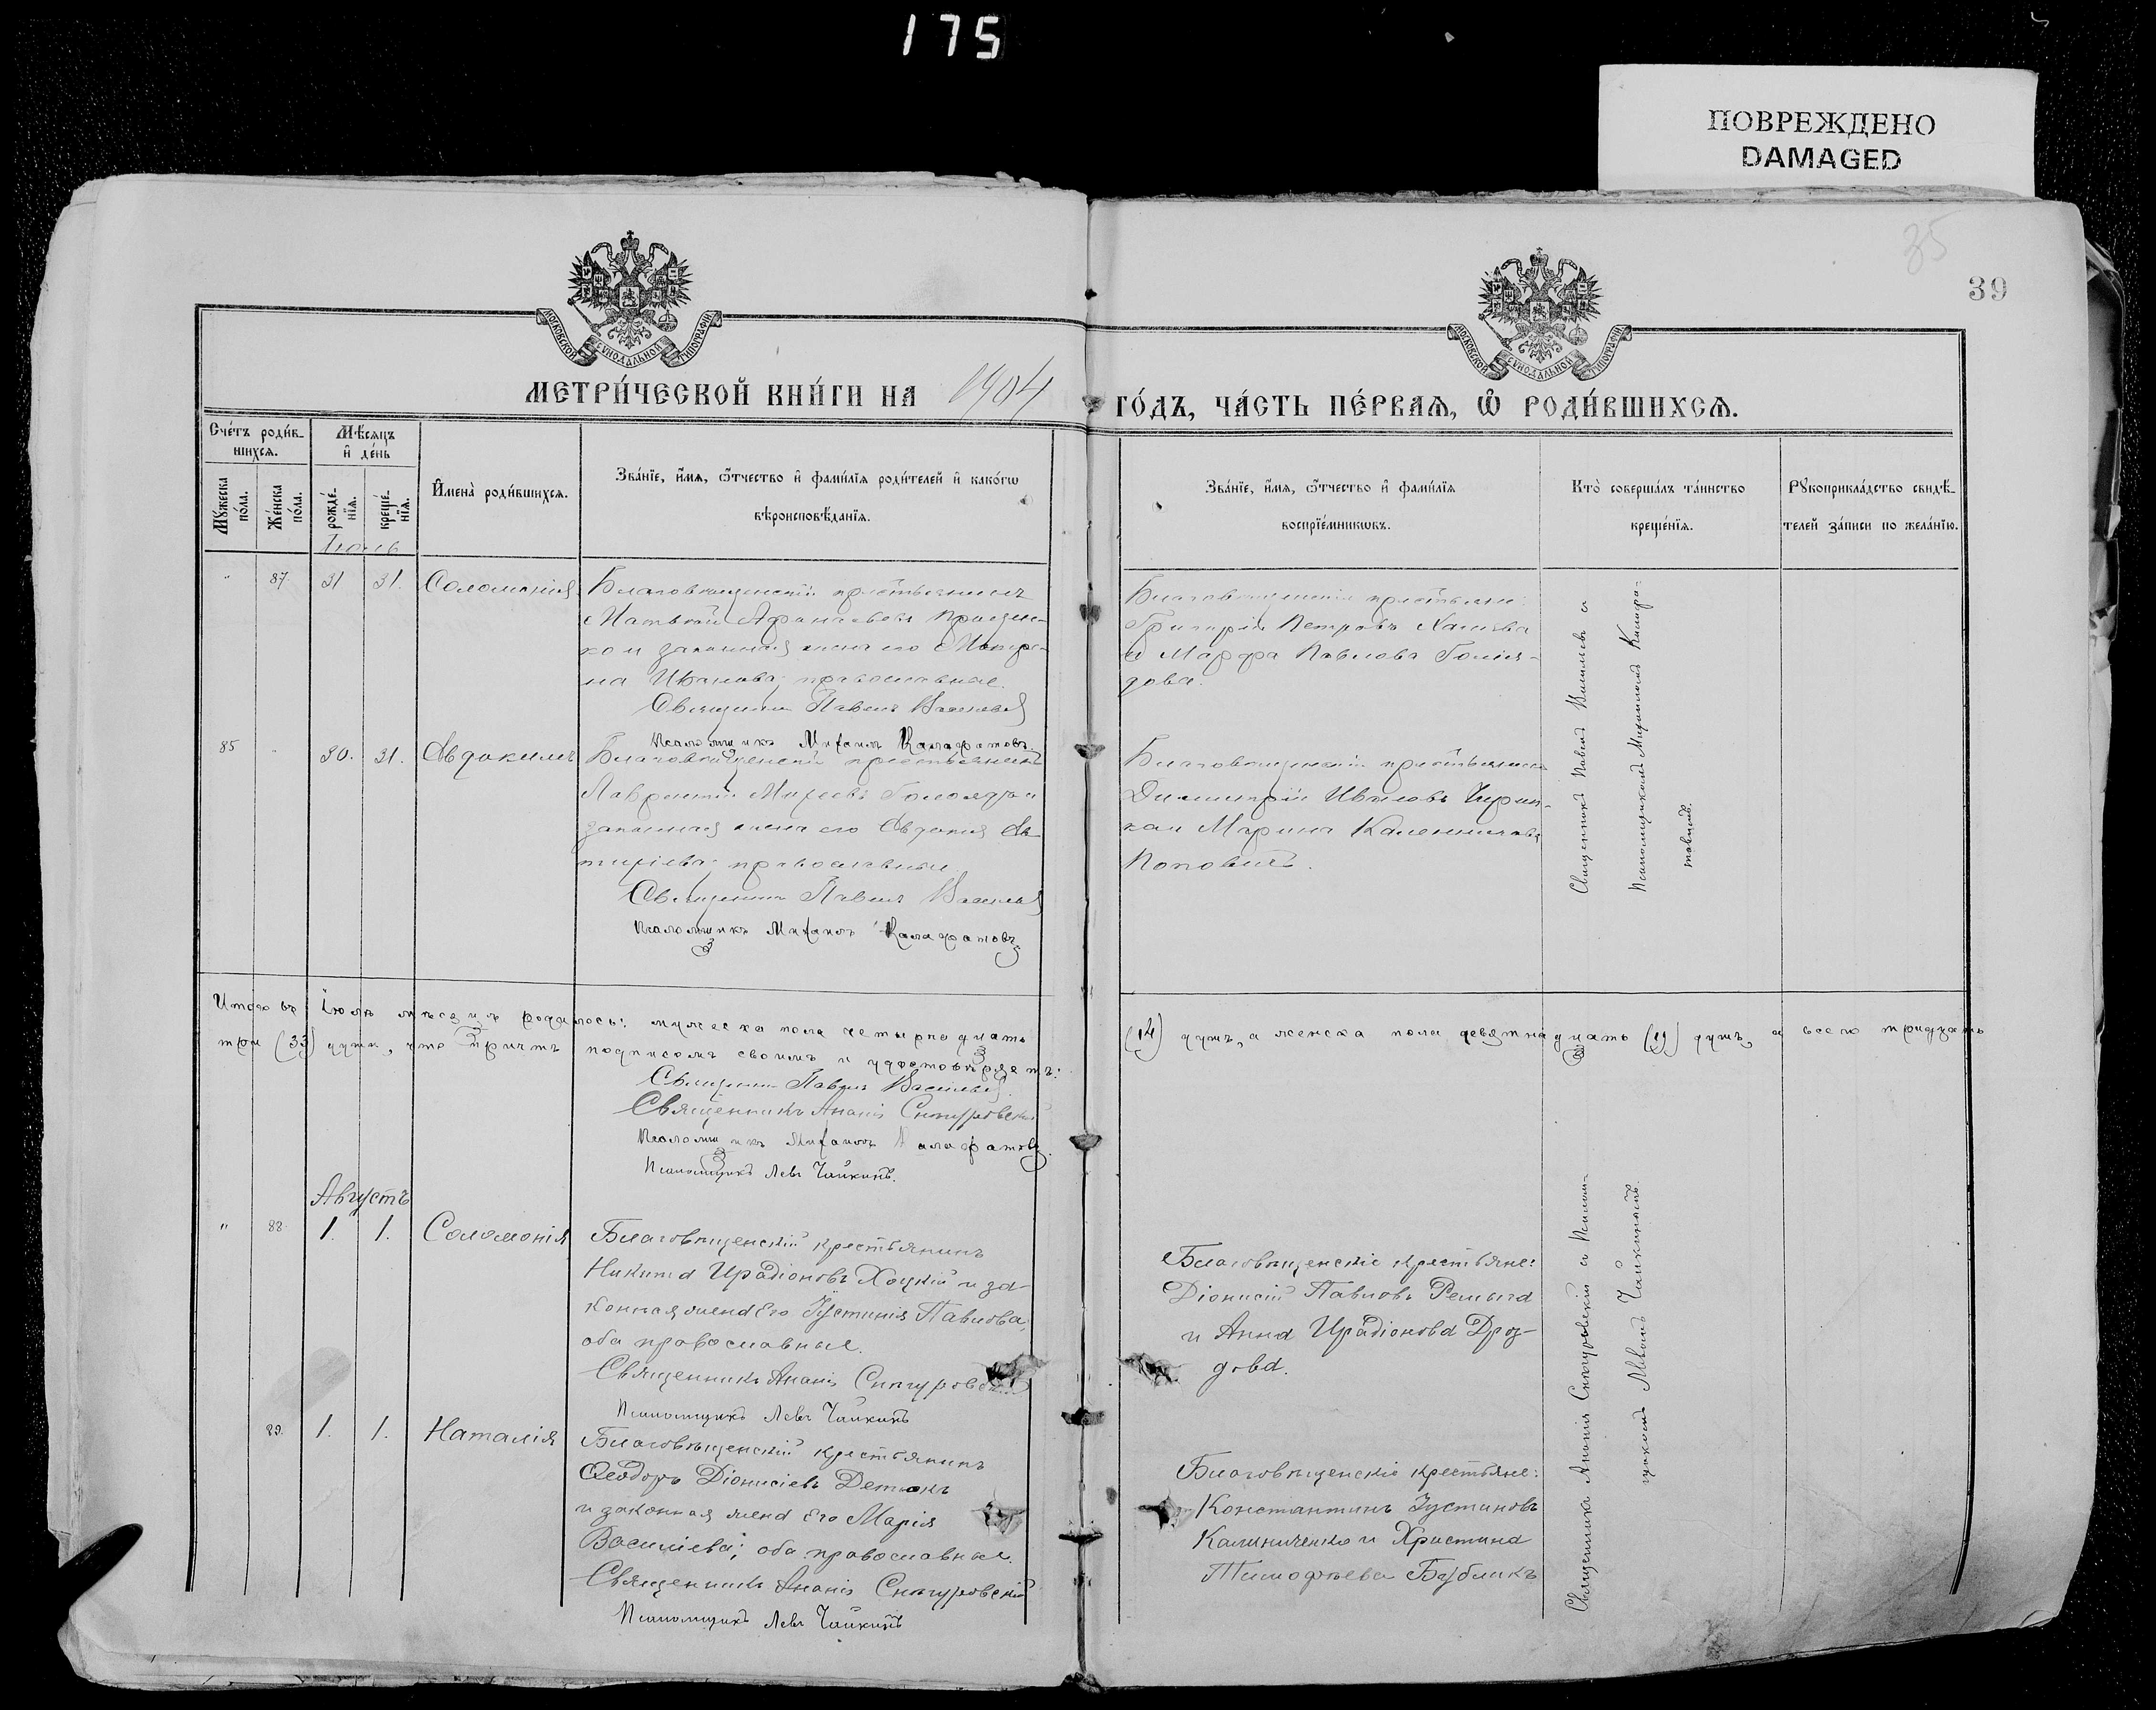 175
ПОВРЕЖДЕНО
DAMAGED
35
39
МОСКОВСКОЙ СѴНОДАЛЬНОЙ ТИПОГРАФІИ
МОСКОВСКОЙ СѴНОДАЛЬНОЙ ТИПОГРАФІИ
МЕТРИ́ЧЕСКОЙ КНИ́ГИ НА 1904
ГО́ДЪ, ЧА́СТЬ ПЕ́РВАѦ, Ѽ РОДИ́ВШИХСѦ.
Сче́тъ роди́в-
шихсѧ.
Мꙋ́жеска по́ла.
Же́нска по́ла.
Мѣ́сѧцъ и҆ де́нь
рожде́-
нїѧ.
креще́-
нїѧ.
И҆мена̀ роди́вшихсѧ.
Зва́нїе, и҆́мѧ, ѻ҆́тчество и҆ фами́лїѧ роди́телей и҆ како́гѡ
вѣроисповѣ́данїѧ.
Зва́нїе, и҆́мѧ, ѻ҆́тчество и҆ фами́лїѧ
воспрїе́мникѡвъ.
Кто̀ соверша́лъ та́инство
креще́нїѧ.
Рꙋкоприкла́дство свидѣ́-
телей за́писи по жела́нїю.
Іюль
" 87. 31 31. Соломонія
Благовѣщенскій крестьянинъ
Матвѣй Афанасьевъ
законная жена его Матро-
на Иванова, православные.
Священникъ Павелъ Васильевъ
Псаломщикъ Михаилъ Калафатовъ.
Григорій Петровъ
и Марфа Павлова
дова.
Священникъ Павелъ Васильевъ и
Псаломщикомъ Михаиломъ Калафа-
товымъ.
85 " 30. 31. Евдокимъ
Благовѣщенскій крестьянинъ
Лаврентій Михеевъ
законная жена его Евдокія Ев-
православные
Священникъ Павелъ Васильевъ
Псаломщикъ Михаилъ Калафатовъ
Благовѣщенскій крестьянинъ
Димитрій Ивановъ
Марина Каленикова
Поповичъ.
Итого въ Іюлѣ мѣсяцѣ родилось: мужеска пола четырнадцать (14) душъ, а женска пола девятнадцать (19) душъ, а всего тридцать
три (33) души, что причтъ подписомъ своимъ и удостовѣряетъ:
Священникъ Павелъ Васильевъ
Священникъ Ананій Снѣгуровскій
Псаломщикъ Михаилъ Калафатовъ.
Псаломщикъ Левъ Чайкинъ.
Августъ
" 88. 1. 1. Соломонія
Благовѣщенскій крестьянинъ
Никита Иродіоновъ Хоцкій и за-
конная жена Его Іустинія Павлова,
оба православные.
Священникъ Ананій Снѣгуровскій
Псаломщикъ Левъ Чайкинъ
Благовѣщенскіе крестьяне:
Діонисій Павловъ Ремыга
и Анна Иродіонова Дроз-
дова.
Священникъ Ананія Снѣгуровскій и Псалом-
щикомъ Львомъ Чайкинымъ.
89. 1. 1. Наталія
Благовѣщенскій крестьянинъ
Ѳеодоръ Діонисіевъ Детюкъ
и законная жена Его Марія
Василіева; оба православные.
Священникъ Ананій Снѣгуровскій
Псаломщикъ Левъ Чайкинъ
Благовѣщенскіе крестьяне:
Константинъ Іустиновъ
Калиниченко и Христина
Тимофѣева Бубликъ